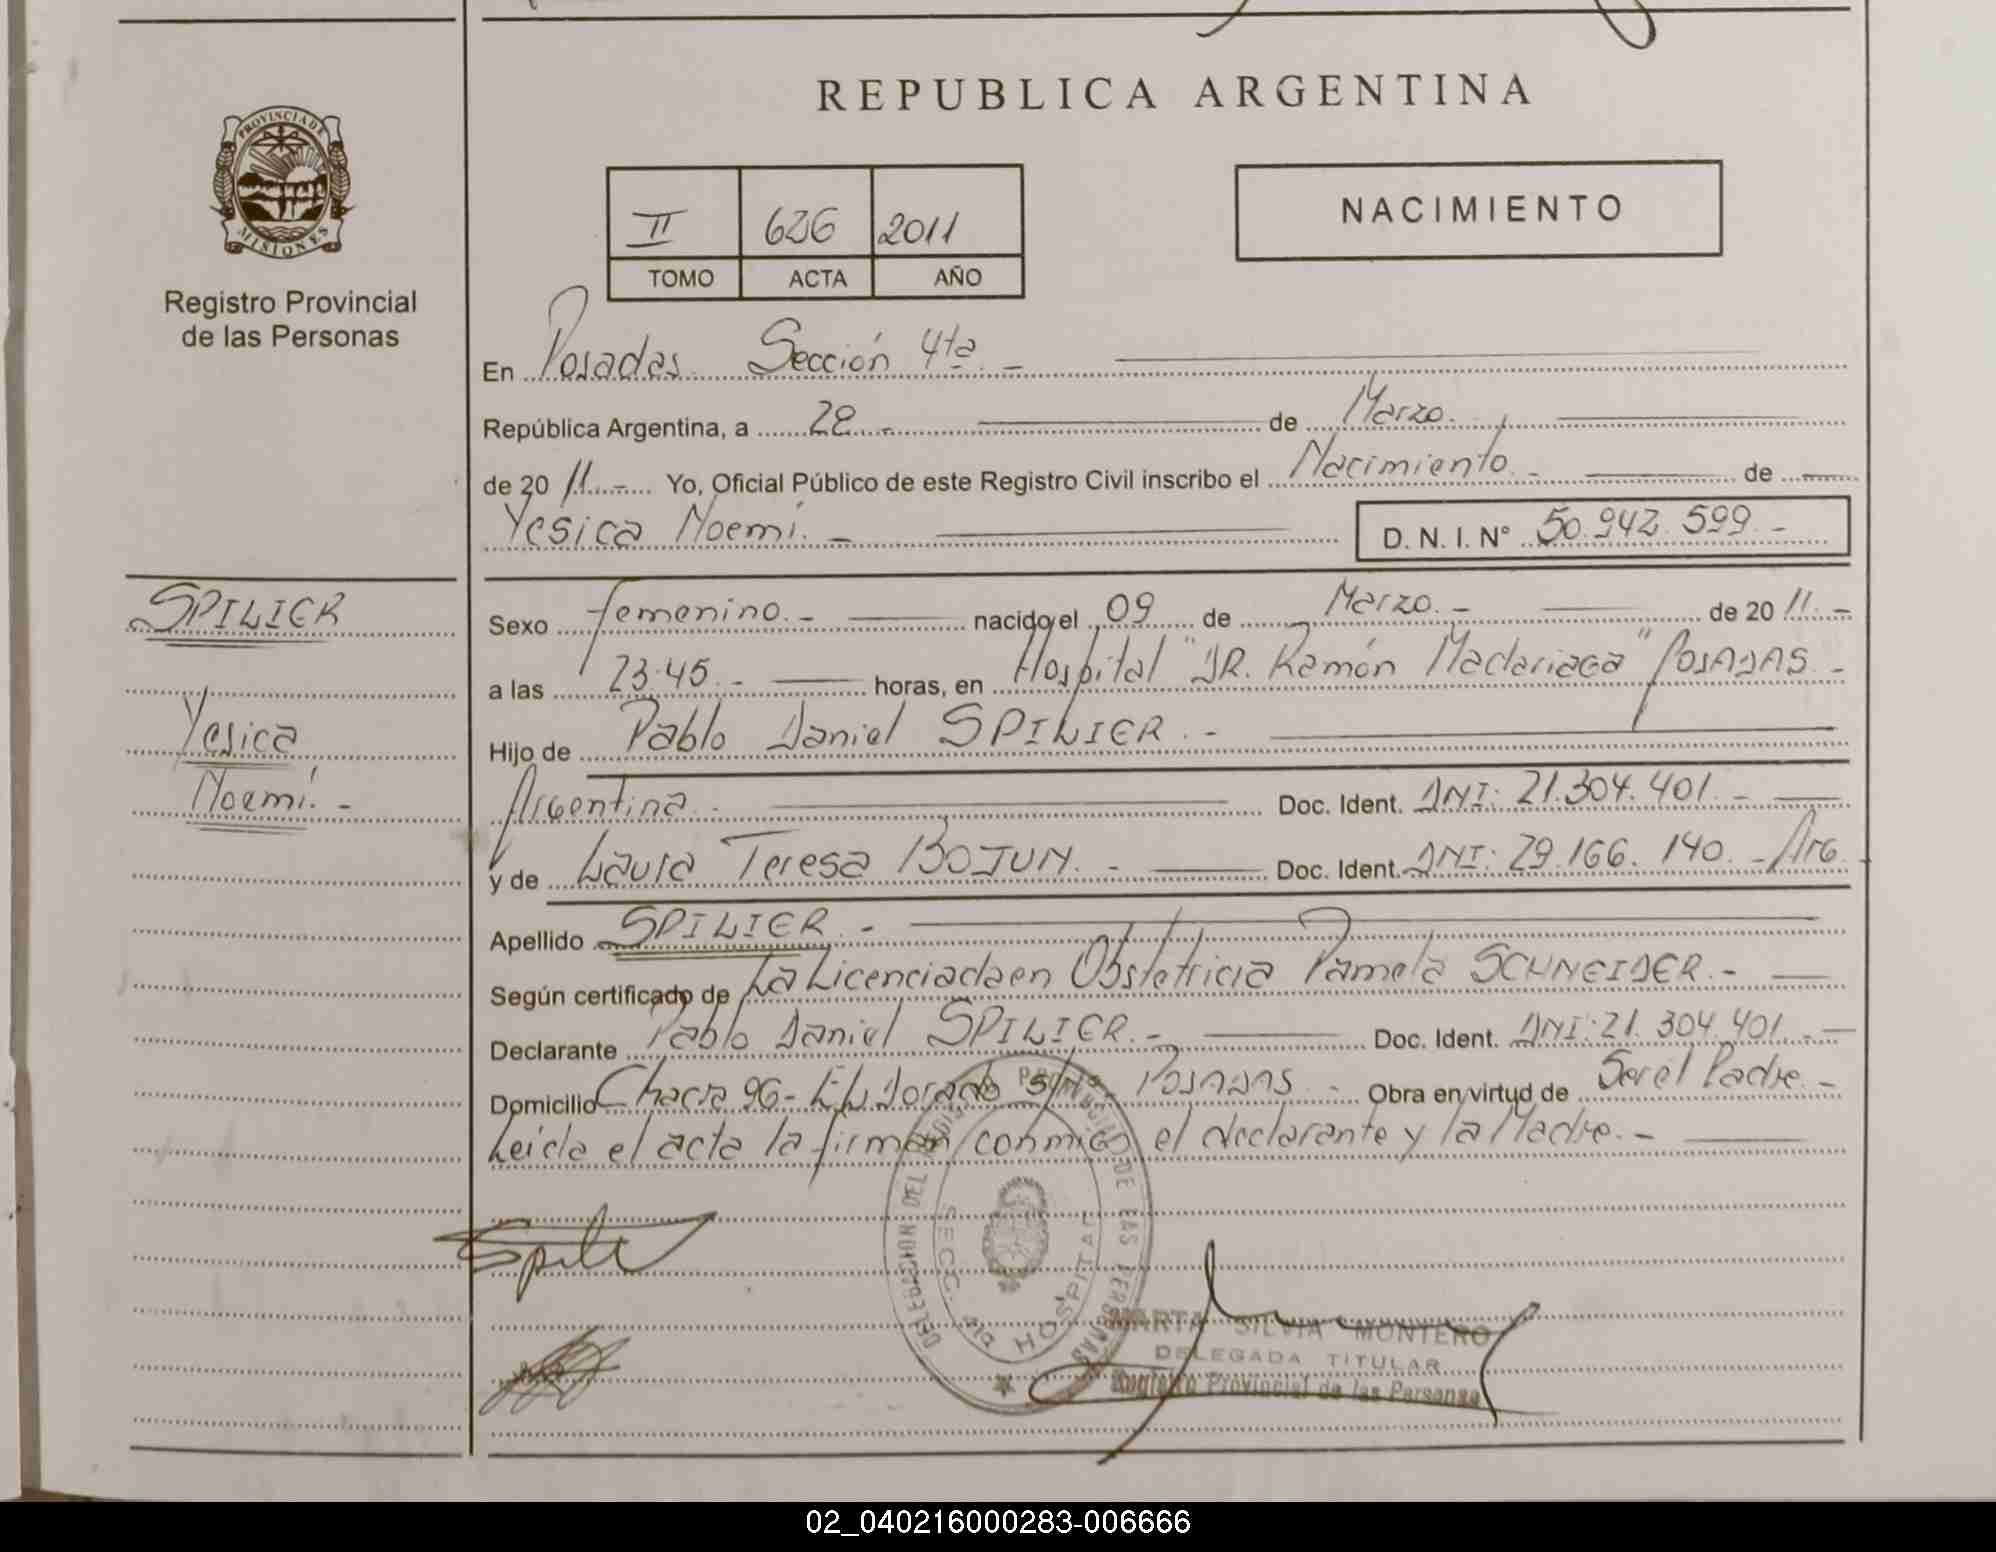 REPUBLICA ARGENTINA
PROVINCIA DE
MISIONES
Registro Provincial
de las Personas
II 2011
TOMO ACTA AÑO
NACIMIENTO
En Posadas Sección 4ta.-
República Argentina, a 28.- de Marzo.
de 20 11.- Yo, Oficial Público de este Registro Civil inscribo el Nacimiento.- de
Yesica Noemí.- D. N. I. Nº 50.942.599.-
SPILIER
Yesica
Noemí.-
Sexo femenino.- nacido el 09 de Marzo.- de 20 11.-
a las 23:45.- horas, en Hospital "DR. Ramón Madariaga" POSADAS.-
Hijo de Pablo Daniel SPILIER.-
Argentina.- Doc. Ident. DNI: 21.304.401.-
y de Laura Teresa BOJUN.- Doc. Ident. DNI: 29.166.140.- Arg.
Apellido SPILIER.-
Según certificado de La Licenciada en Obstetricia Pamela SCHNEIDER.-
Declarante Pablo Daniel SPILIER.- Doc. Ident. DNI: 21.304.401.-
Domicilio Chacra 96- ELDorado S/Nº- POSADAS.- Obra en virtud de Ser el Padre.-
Leida el acta la firman conmigo el declarante y la Madre.-
DELEGACION DEL REGISTRO PROVINCIAL DE LAS PERSONAS
SECC. 4ta HOSPITAL
MARTA SILVIA MONTERO
DELEGADA TITULAR
Registro Provincial de las Personas
02_040216000283-006666